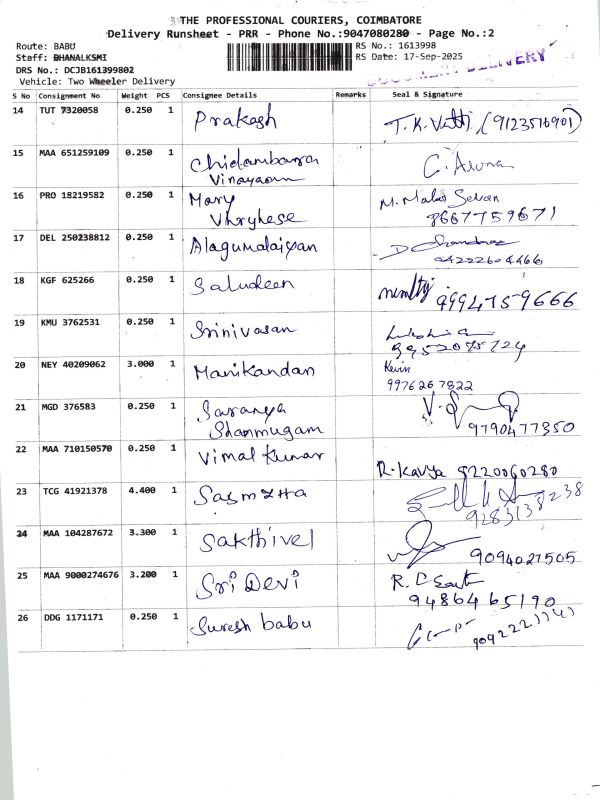 THE PROFESSIONAL COURIERS, COIMBATORE
Delivery Runsheet - PRR - Phone No.:9047080280 - Page No.:2
Route: BABU
RS No.: 1613998
Staff: DHANALKSMI
RS Date: 17-Sep-2025
DRS No.: DCJB161399802
DOCUMENT DELIVERY
Vehicle: Two Wheeler Delivery
S No Consignment No Weight PCS Consignee Details Remarks Seal & Signature
14 TUT 7320058 0.250 1 Prakash T.K. (9123516901)
15 MAA 651259109 0.250 1 Chidambara C. Aruna
Vinayagam
16 PRO 18219582 0.250 1 Mary M. Malar Selvan
Vhrghese 8667759671
17 DEL 250238812 0.250 1 Alagumalaiyan
04222604466
18 KGF 625266 0.250 1 Saludeen 9994759666
19 KMU 3762531 0.250 1 Srinivasan
9952095724
20 NEY 40209062 3.000 1 Manikandan Kevin
9976267822
21 MGD 376583 0.250 1 Saranya
Shanmugam 9790477350
22 MAA 710150570 0.250 1 Vimal Kumar
R. Kavya 8220060280
23 TCG 41921378 4.400 1
9283138238
24 MAA 104287672 3.300 1 Sakthivel
9094027505
25 MAA 9000274676 3.200 1 Sri Devi
9486465190
26 DDG 1171171 0.250 1 Suresh babu